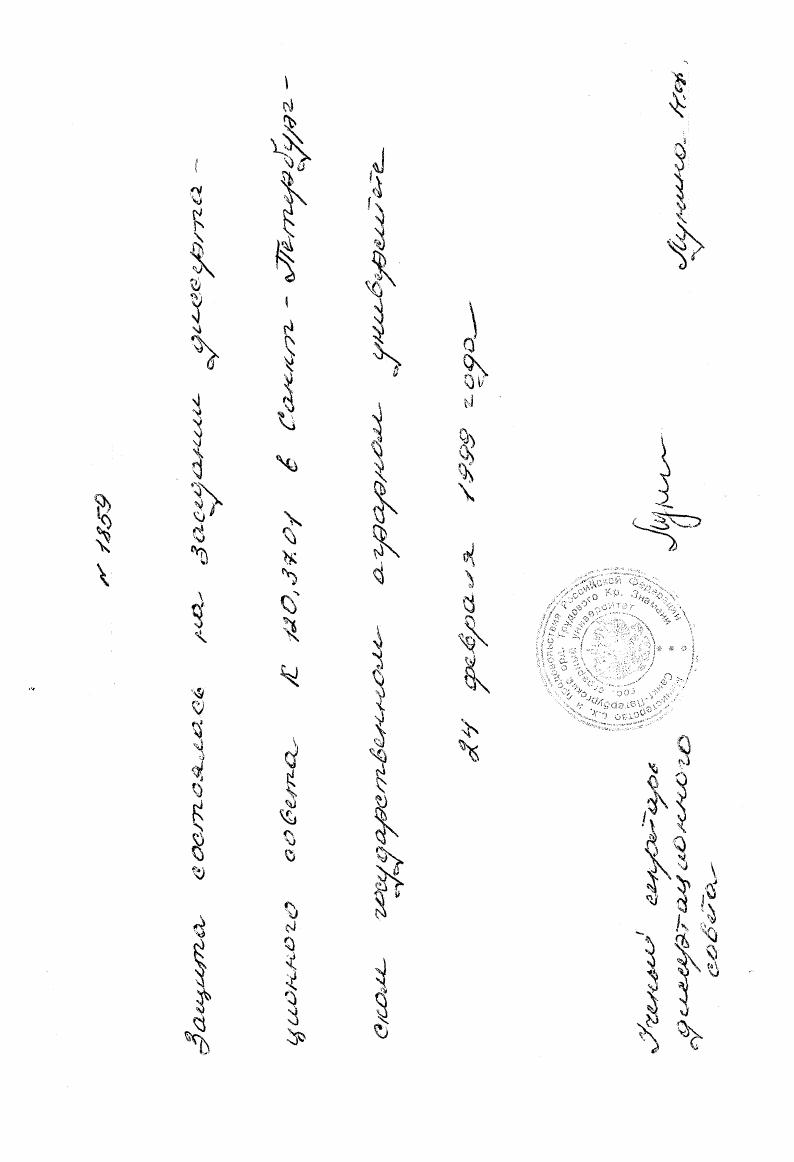 N 1859
Защита состоялась на заседании диссерта-
ционного совета К 120.37.01 в Санкт-Петербург-
ском государственном аграрном университете
24 февраля 1999 года
Ученый секретарь
диссертационного
совета
Лунина Н.Ф.
Министерство с.х. и продовольствия Российской Федерации
Санкт-Петербургский орд. Трудового Кр. Знамени
гос. аграрный университет